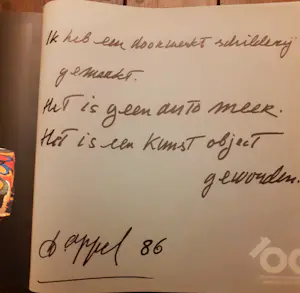 Ik heb een doorwerkt schilderij
gemaakt.
Het is geen auto meer.
Het is een Kunst object
geworden.
Appel 86
100